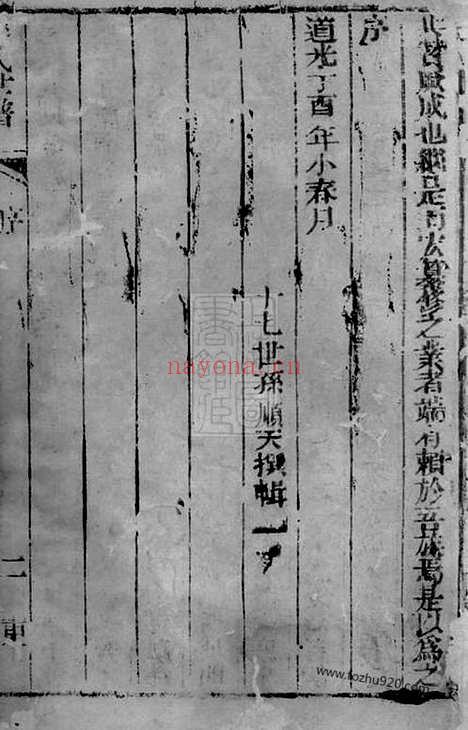 成也繼是而修之業者端有賴於吾族焉是以為之
序
道光丁酉年小春月
十七世孫順天撰輯
氏世譜
序
二
nayona.cn
www.fozhu920.com